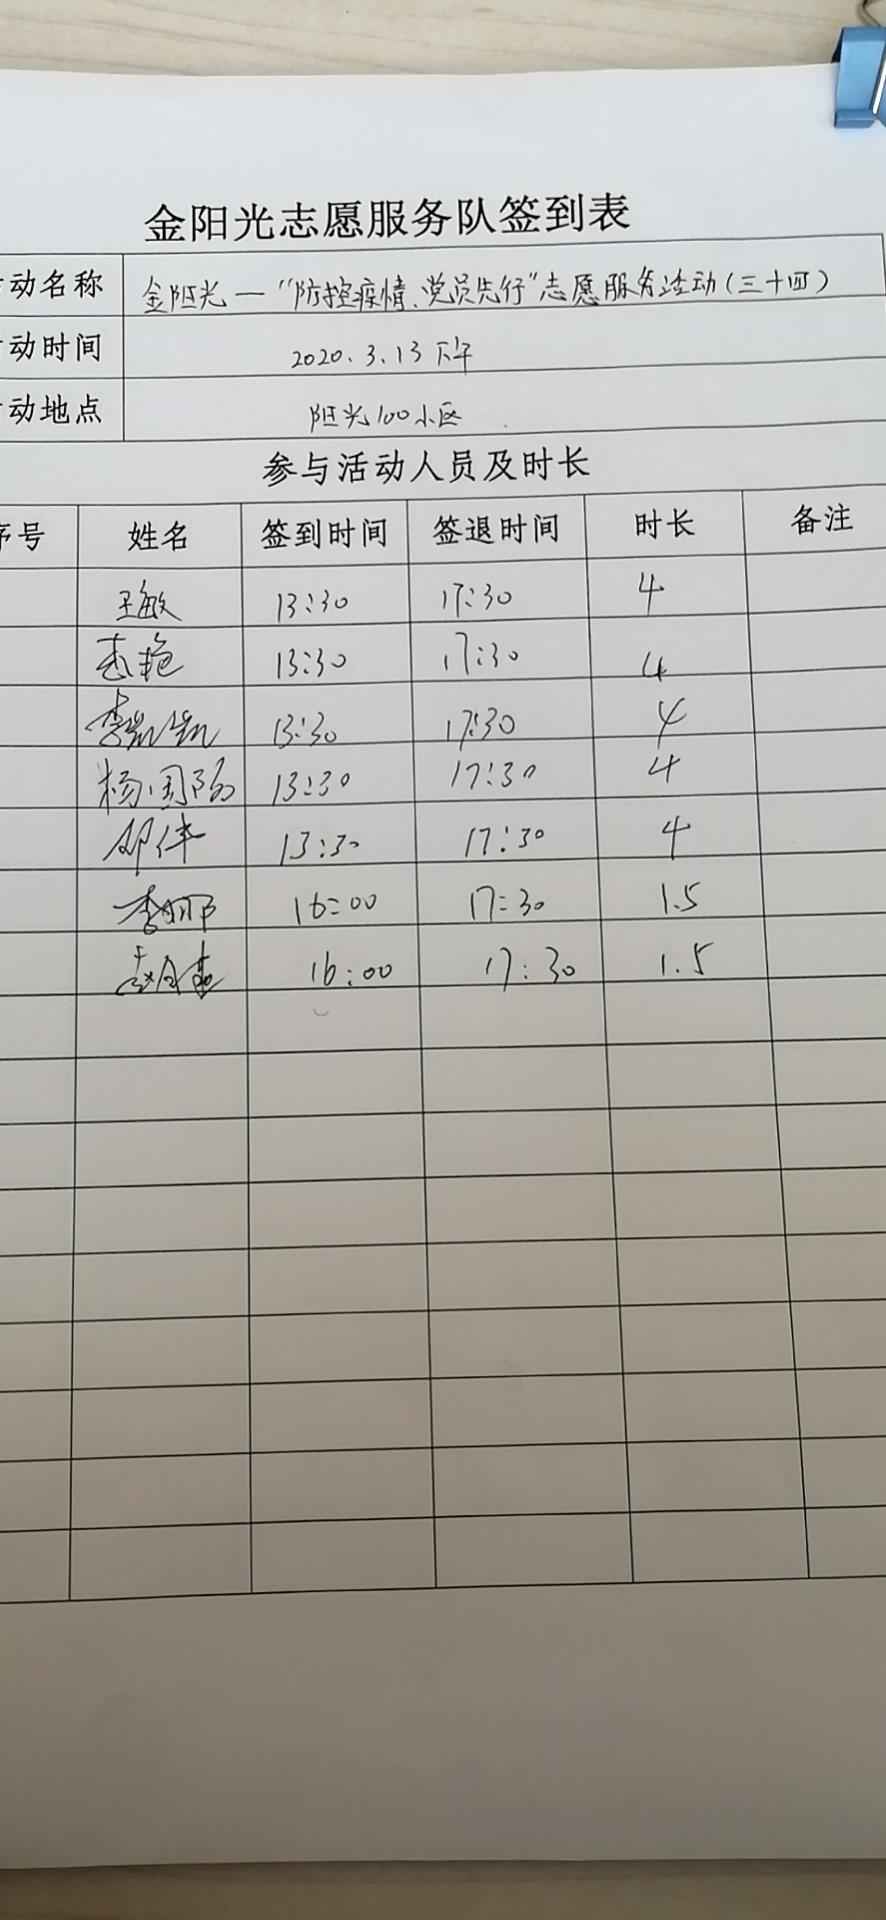 金阳光志愿服务队签到表
动名称 金阳光—“防控疫情、党员先行”志愿服务活动(三十四)
动时间 2020.3.13下午
动地点 阳光100小区
参与活动人员及时长
序号 姓名 签到时间 签退时间 时长 备注
王敏 13:30 17:30 4
13:30 17:30 4
李凯凯 13:30 17:30 4
杨国阳 13:30 17:30 4
邓伟 13:30 17:30 4
李娜 16:00 17:30 1.5
16:00 17:30 1.5